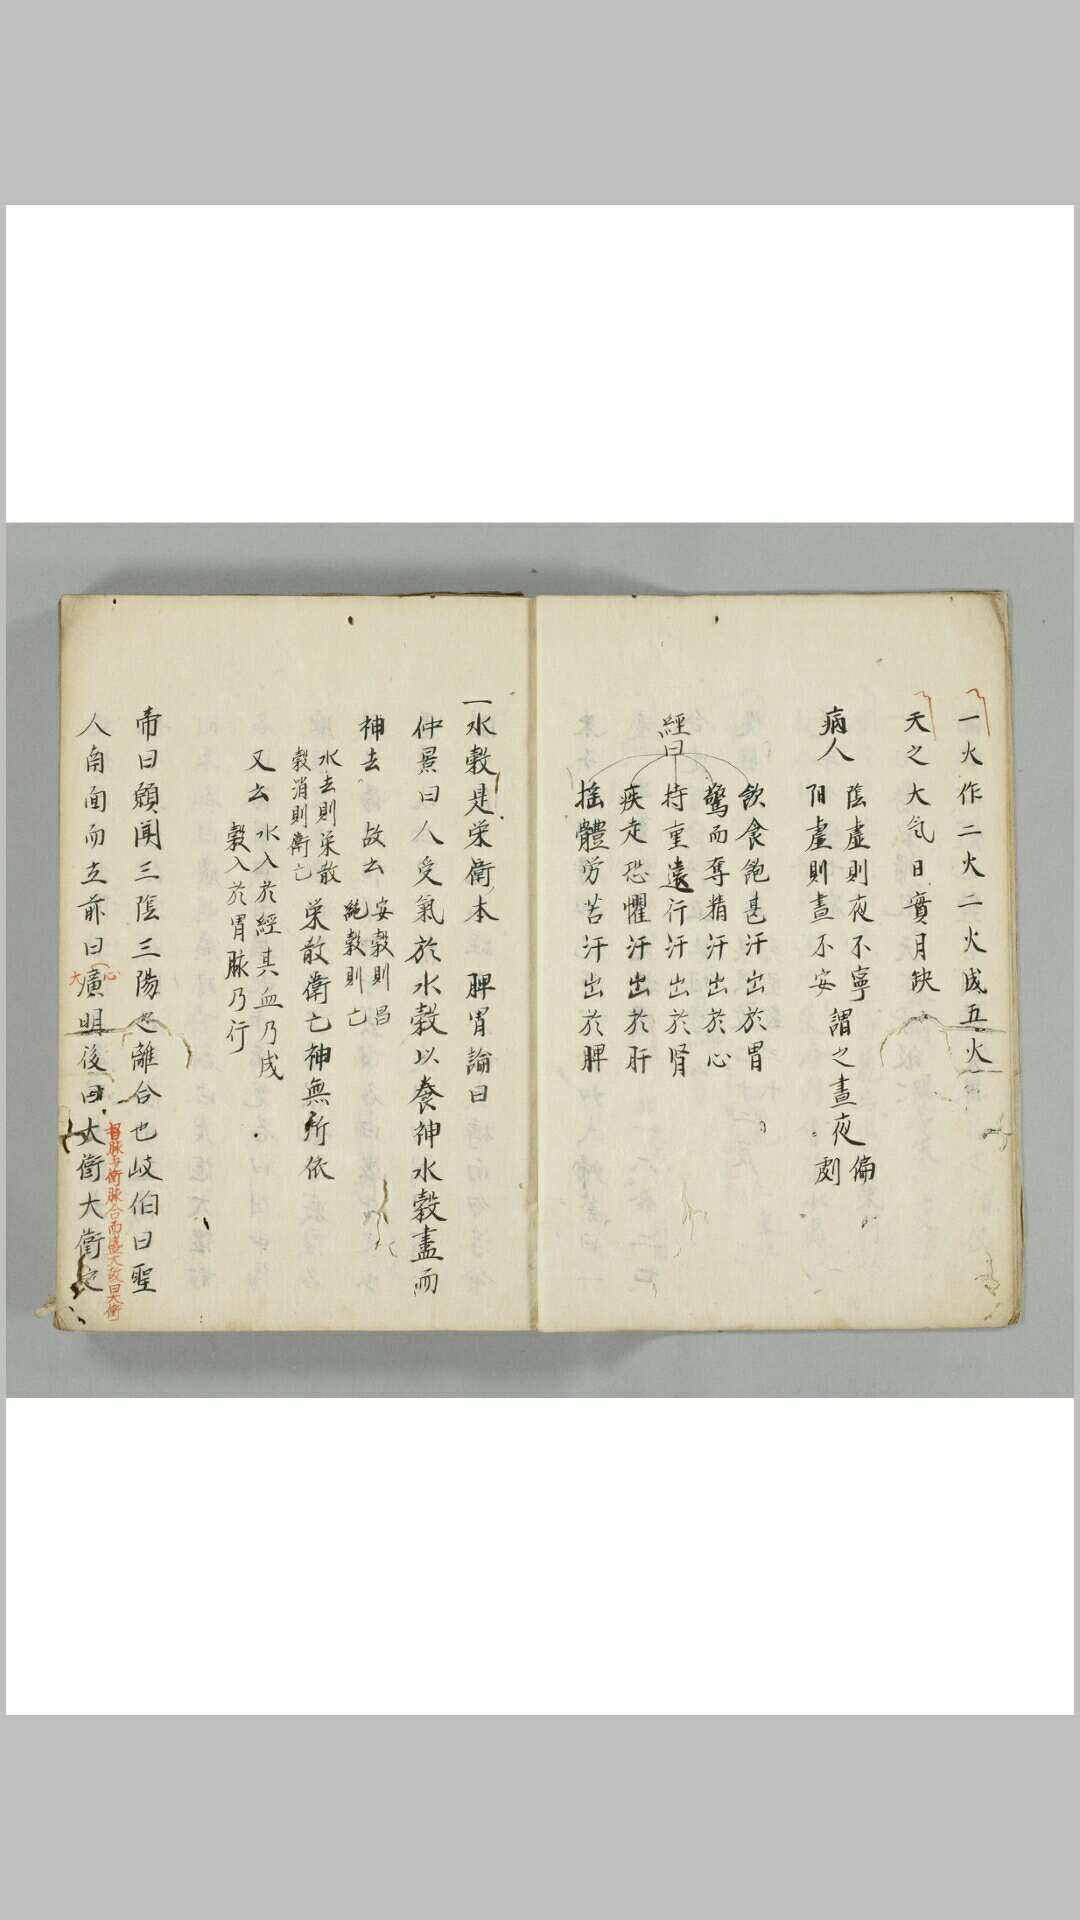 一火作二火二火成五火
天之大気日實月缺
病人
陰虚則夜不寧
阳虚則晝不安
謂之晝夜偏劇
經曰
飲食飽甚汗出於胃
驚而奪精汗出於心
持重遠行汗出於腎
疾走恐懼汗出於肝
揺體労苦汗出於脾
一水穀是栄衛本 脾胃論曰
仲景曰人受氣於水穀以養神水穀盡而
神去 故云
安穀則昌
絶穀則亡
水去則栄散
穀消則衛亡
栄散衛亡神無所依
又云
水入於經其血乃成
穀入於胃脉乃行
帝曰願闻三陰三陽之離合也岐伯曰聖
人南面而立前曰廣明後曰大衝大衝之
心
大
督脉与衝脉合而盛大故曰大衝